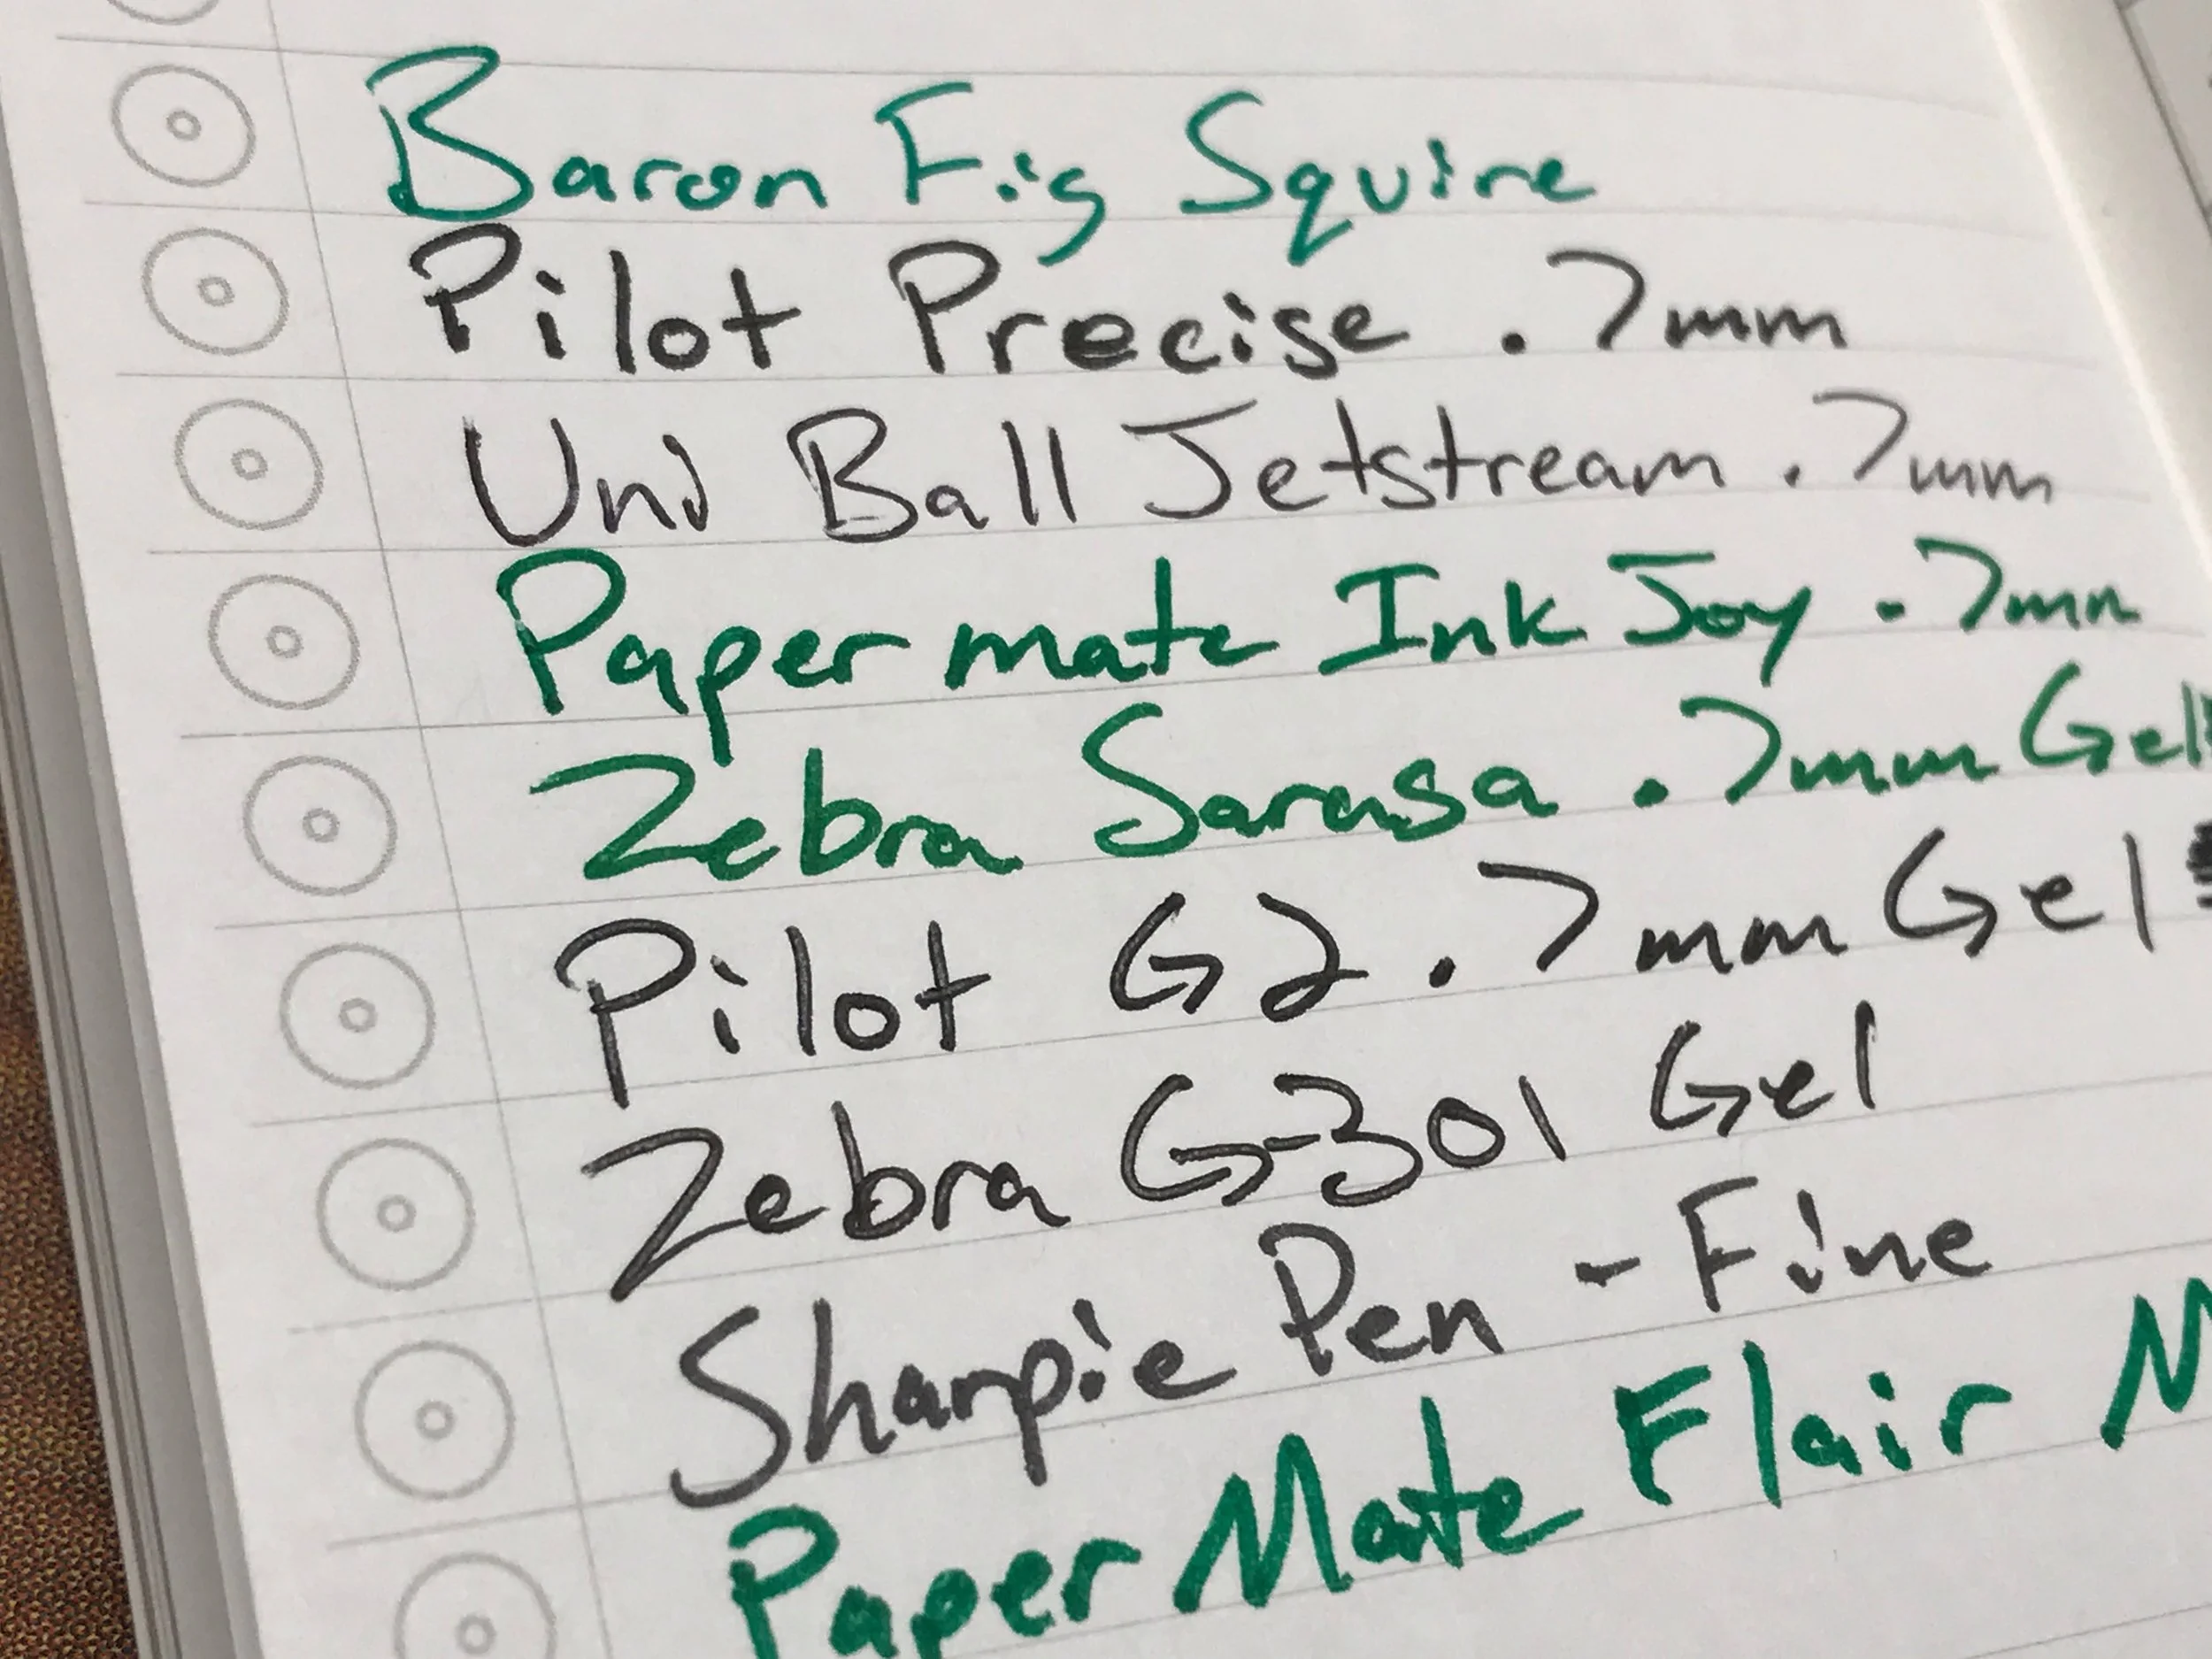 Baron Fig Squire
Pilot Precise .7mm
Uni Ball Jetstream .7mm
Papermate Ink Joy .7mm
Zebra Sarasa .7mm Gel
Pilot G2 .7mm Gel
Zebra G-301 Gel
Sharpie Pen - Fine
Paper Mate Flair M